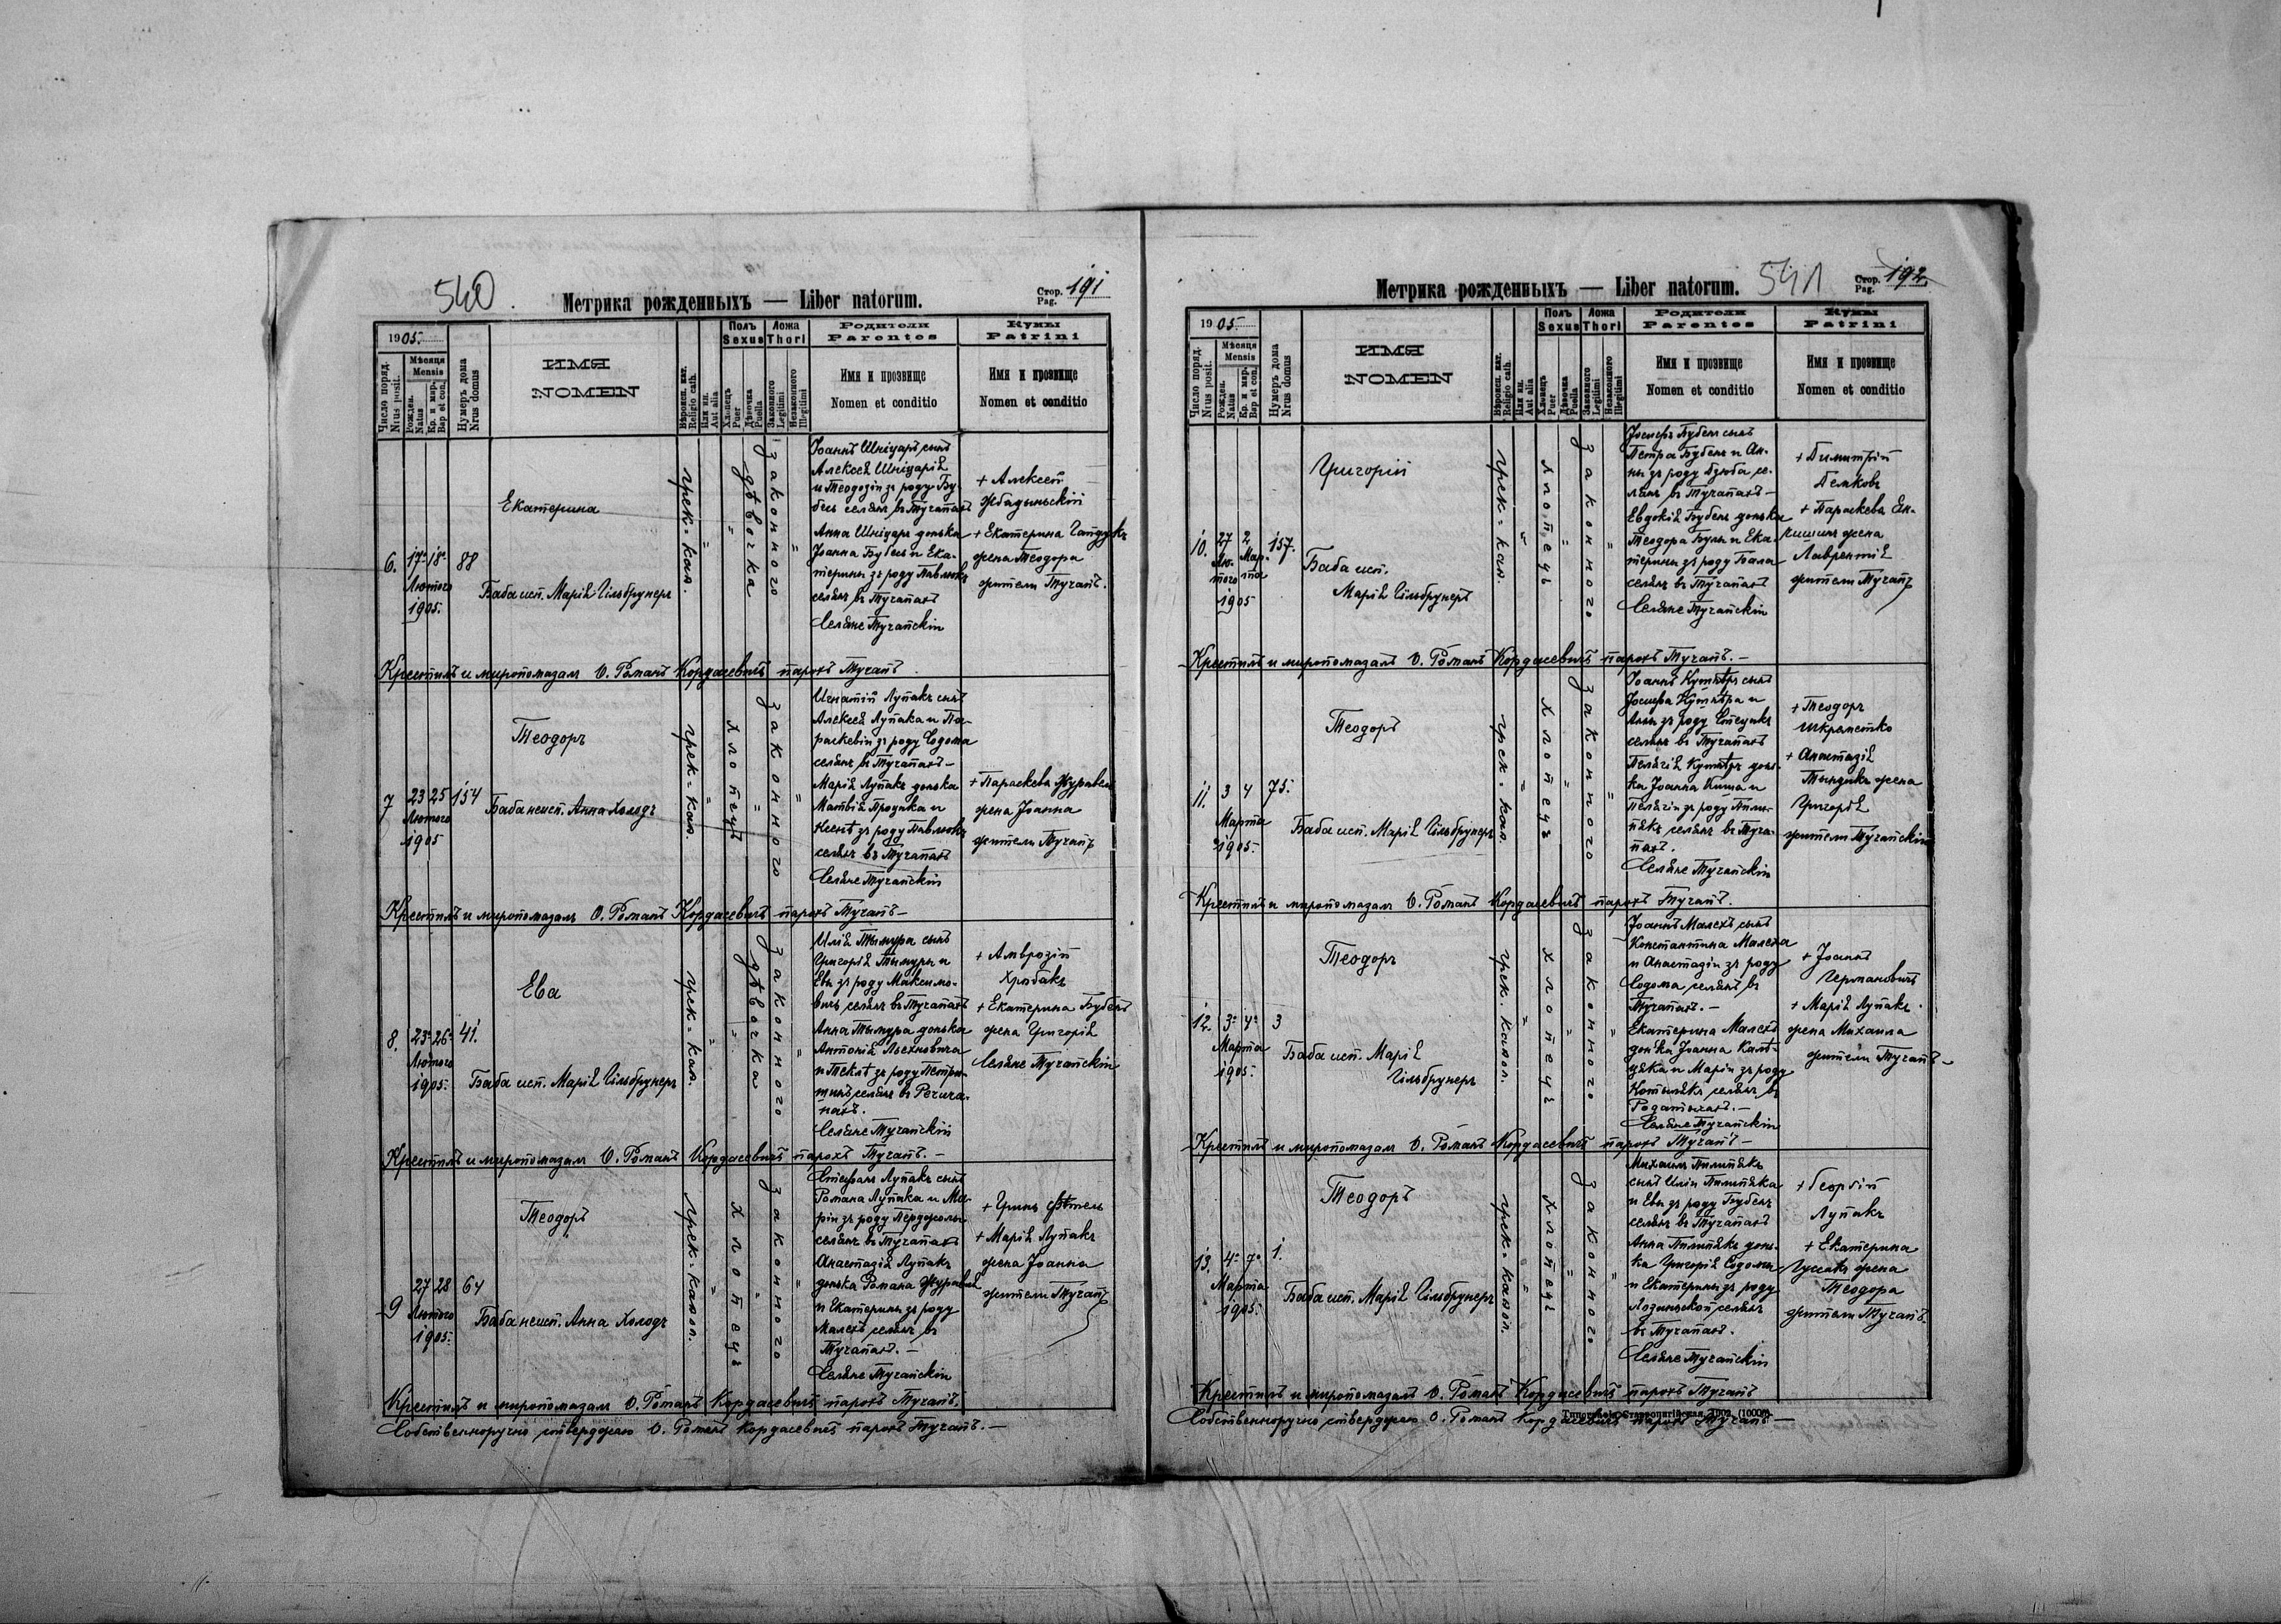 540.
Метрика рожденныхъ — Liber natorum.
Стор. 191
Pag.
1905.
Число поряд.
Nrus posit.
Мѣсяця
Mensis
Рожден.
Natus
Кр. и мир.
Bap et con.
Нумеръ дома
Nrus domus
ИМЯ
NOMEN
Вѣроисп. кат.
Religio cath.
Или ин.
Aut alia
Полъ
Sexus
Хлопецъ
Puer
Дѣвочка
Puella
Ложа
Thori
Законного
Legitimi
Незаконного
Illegitimi
Родители
Parentes
Имя и прозвище
Nomen et conditio
Кумы
Patrini
Имя и прозвище
Nomen et conditio
6.
17. 18.
Лютого
1905.
88
Екатерина
Баба исп. Марія Гільбрунеръ
грек=кат.
дѣвочка
законного
Іоаннъ Шніцаръ сынъ
Алексея Шніцарія
и Теодозіи зъ роду Бу-
бесь селянъ въ Тучапахъ
Анна Шніцаръ донька
Іоанна Бубесь и Ека-
терины зъ роду Павлюкъ
селянъ въ Тучапахъ
Селяне Тучапскіи
+ Алексей
+ Екатерина
жена Теодора
жители Тучапъ.
Крестилъ и миропомазалъ О. Романъ Кордасевичъ парохъ Тучапъ
7
23 25
Лютого
1905
154
Теодоръ
Баба неисп. Анна Холодъ
грек=кат.
хлопецъ
законного
Игнатій Лупакъ сынъ
Алексея Лупака и Па-
раскевіи зъ роду Содома
селянъ въ Тучапахъ —
Марія Лупакъ донька
Матвія Процика и
зъ роду Павлюкъ
селянъ въ Тучапахъ
Селяне Тучапскіи
+ Параскева Журавель
жена Іоанна
жители Тучапъ
Крестилъ и миропомазалъ О. Романъ Кордасевичъ парохъ Тучапъ —
8.
23. 26.
Лютого
1905.
41.
Ева
Баба исп. Марія Гільбрунеръ
грек=кат.
дѣвочка
законного
Илія Тымура сынъ
Григорія Тымуры и
Евы зъ роду Максимо-
вичъ селянъ въ Тучапахъ
Анна Тымура донька
Антонія Льехновича
и Теклѣ зъ роду Петри-
селянъ въ Речича-
нахъ.
Селяне Тучапскіи
+ Амврозій
Хрибакъ
+ Екатерина Бубенъ
жена Григорія
Селяне Тучапскіи
Крестилъ и миропомазалъ О. Романъ Кордасевичъ парохъ Тучапъ. —
9
27 28
Лютого
1905.
64
Теодоръ
Баба неисп. Анна Холодъ
грек=катол.
хлопецъ
законного
Стефанъ Лупакъ сынъ
Романа Лупака и Ма-
ріи зъ роду
селянъ въ Тучапахъ
Анастазія Лупакъ
донька Романа Журавель
и Екатерины зъ роду
Малехъ селянъ въ
Тучапахъ. —
Селяне Тучапскіи
+ Гринь
+ Марія Лупакъ
жена Іоанна
жители Тучапъ
Крестилъ и миропомазалъ О. Романъ Кордасевичъ парохъ Тучапъ.
Собственноручно ствержаю О. Романъ Кордасевичъ парохъ Тучапъ. —
541
Метрика рожденныхъ — Liber natorum.
Стор. 192
Pag.
1905.
Число поряд.
Nrus posit.
Мѣсяця
Mensis
Рожден.
Natus
Кр. и мир.
Bap et con.
Нумеръ дома
Nrus domus
ИМЯ
NOMEN
Вѣроисп. кат.
Religio cath.
Или ин.
Aut alia
Полъ
Sexus
Хлопецъ
Puer
Дѣвочка
Puella
Ложа
Thori
Законного
Legitimi
Незаконного
Illegitimi
Родители
Parentes
Имя и прозвище
Nomen et conditio
Кумы
Patrini
Имя и прозвище
Nomen et conditio
10.
27 2
Лю- Мар-
того та
1905
157.
Григорій
Баба исп.
Марія Гільбрунеръ
грек=кат.
хлопецъ
законного
Іосифъ Бубенъ сынъ
Петра Бубенъ и Ан-
ны зъ роду Дзюба се-
лянъ въ Тучапахъ —
Евдокія Бубенъ донька
Теодора Булы и Ека-
терины зъ роду Бала
селянъ въ Тучапахъ
Селяне Тучапскіи
+ Димитрій
+ Параскева
жена
Лаврентія
жители Тучапъ
Крестилъ и миропомазалъ О. Романъ Кордасевичъ парохъ Тучапъ. —
11.
3 4
Марта
1905.
75.
Теодоръ
Баба исп. Марія Гільбрунеръ
грек=кат.
хлопецъ
законного
Іоаннъ Кушнѣръ сынъ
Іосифа Кушнѣра и
Анны зъ роду Стецикъ
селянъ въ Тучапахъ
Пелагія Кушнѣръ донь-
ка Іоанна Киша и
Пелагіи зъ роду Пили-
пякъ селянъ въ Туча-
пахъ.
Селяне Тучапскіи
+ Теодоръ
Шкраметко
+ Анастазія
Тындикъ жена
Григорія
жители Тучапскіи
Крестилъ и миропомазалъ О. Романъ Кордасевичъ парохъ Тучапъ.
12.
3. 4.
Марта
1905.
3
Теодоръ
Баба исп. Марія
Гільбрунеръ
грек. катол.
хлопецъ
законного
Іоаннъ Малехъ сынъ
Константина Малеха
и Анастазіи зъ роду
Содома селянъ въ
Тучапахъ. —
Екатерина Малехъ
донька Іоанна
и Маріи зъ роду
Котылякъ селянъ въ
Родатычахъ. —
Селяне Тучапскіи
+ Іоаннъ
Германовичъ
+ Марія Лупакъ
жена Михаила
жители Тучапъ —
Крестилъ и миропомазалъ О. Романъ Кордасевичъ парохъ Тучапъ —
13.
4. 7.
Марта
1905.
1.
Теодоръ
Баба исп. Марія Гільбрунеръ
грек=катол.
хлопецъ
законного
Михаилъ Пилипякъ
сынъ Иліи Пилипяка
и Евы зъ роду Бубенъ
селянъ въ Тучапахъ
Анна Пилипякъ донь-
ка Григорія Содомы
и Екатерины зъ роду
Лозинской селянъ
въ Тучапахъ.
Селяне Тучапскіи
+ Георгій
Лупакъ
+ Екатерина
Гусакъ жена
Теодора
жители Тучапъ.
Крестилъ и миропомазалъ О. Романъ Кордасевичъ парохъ Тучапъ
Собственноручно ствержаю О. Романъ Кордасевичъ парохъ Тучапъ —